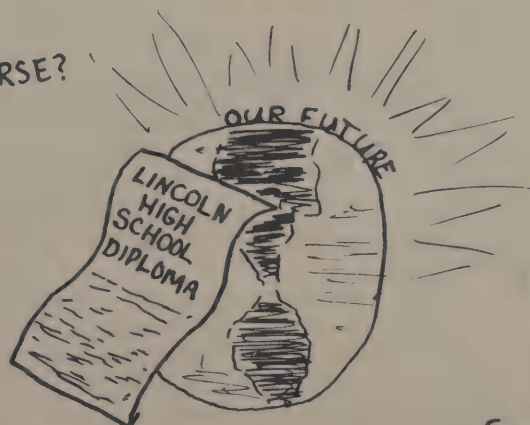 OUR FUTURE
LINCOLN
HIGH
SCHOOL
DIPLOMA